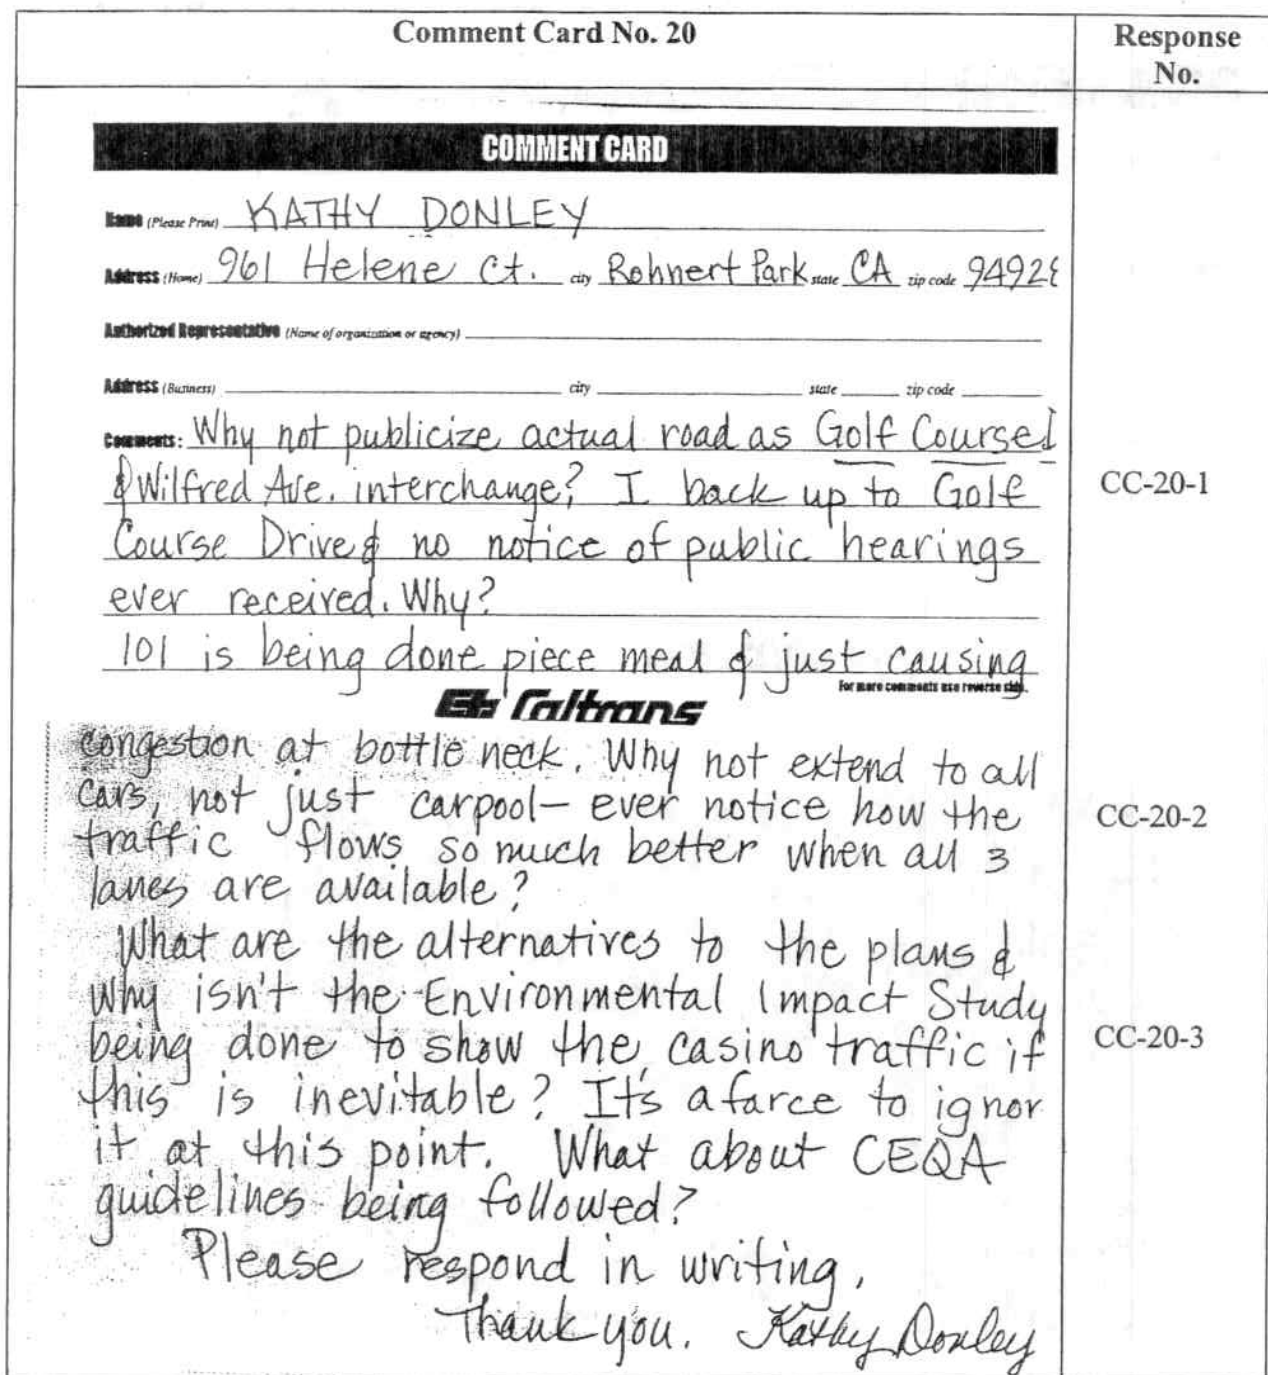 Comment Card No. 20
Response
No.
COMMENT CARD
Name (Please Print) KATHY DONLEY
Address (Home) 961 Helene Ct. city Rohnert Park state CA zip code 9492
Authorized Representative (Name of organization or agency)
Address (Business) city state zip code
Comments: Why not publicize actual road as Golf Course
& Wilfred Ave. interchange? I back up to Golf
CC-20-1
Course Drive & no notice of public hearings
ever received. Why?
101 is being done piece meal & just causing
For more comments use reverse side.
Caltrans
congestion at bottle neck. Why not extend to all
cars, not just carpool- ever notice how the
CC-20-2
traffic flows so much better when all 3
lanes are available?
What are the alternatives to the plans &
why isn't the Environmental Impact Study
being done to show the casino traffic if
CC-20-3
this is inevitable? It's a farce to ignor
it at this point. What about CEQA
guidelines being followed?
Please respond in writing.
Thank you. Kathy Donley